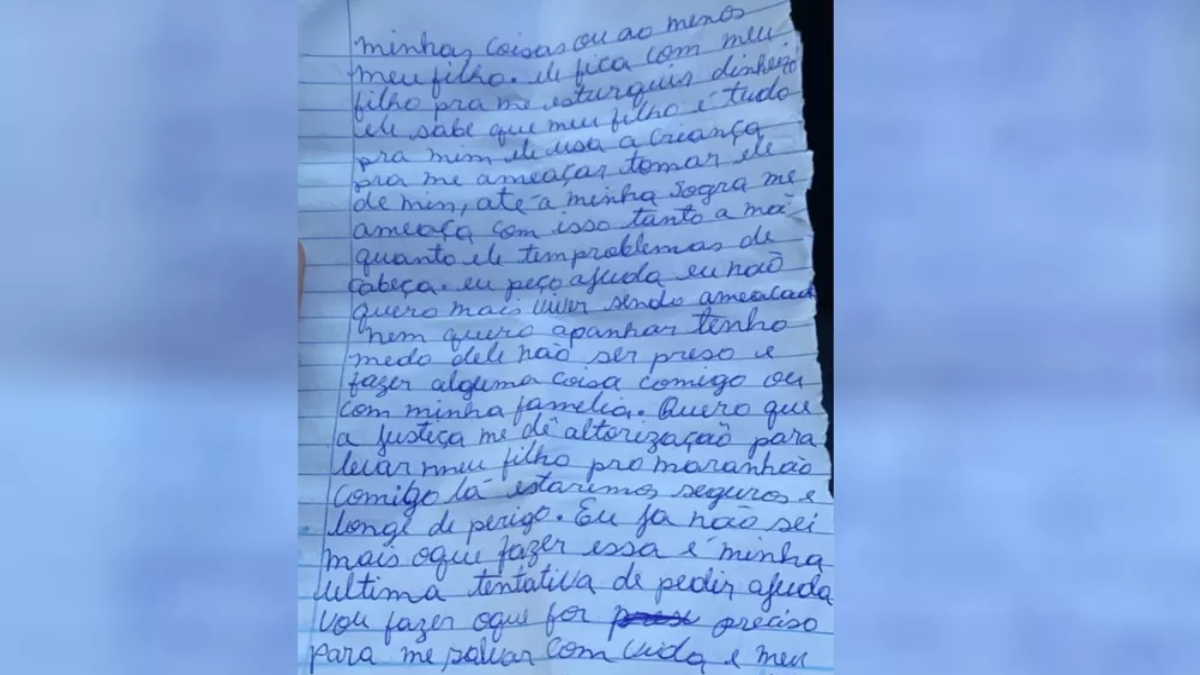 minhas coisas ou ao menos
meu filho. ele fica com meu
filho pra me esturquis dinheiro
ele sabe que meu filho é tudo
pra mim ele usa a criança
pra me ameaças tomar ele
de min, até a minha sogra me
ameaça com isso tanto a mãe
quanto ele tem problemas de
cabeça. eu peço ajuda eu não
quero mais viver sendo ameaçada
nem quero apanhar tenho
medo dele não ser preso e
fazer alguma coisa comigo ou
com minha famelia. Quero que
a justiça me dê altorização para
levar meu filho pro maranhão
comigo lá estaremos seguros e
longe de perigo. Eu ja não sei
mais oque fazer essa é minha
ultima tentativa de pedir ajuda
vou fazer oque for preciso
para me salvar com vida e meu